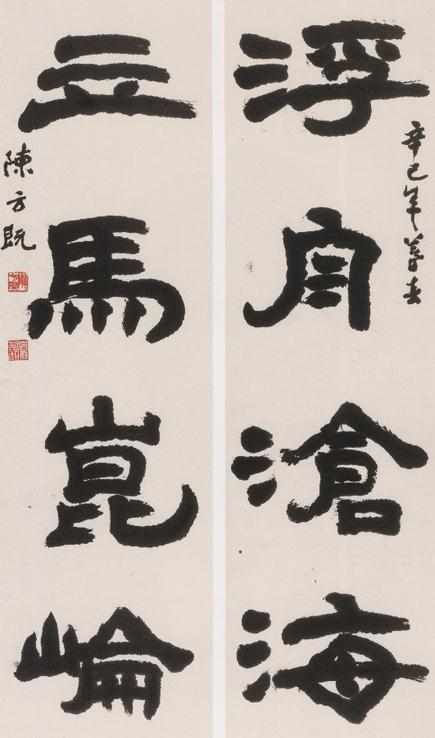 辛巳年暮春
浮舟滄海
立馬崑崙
陳方既